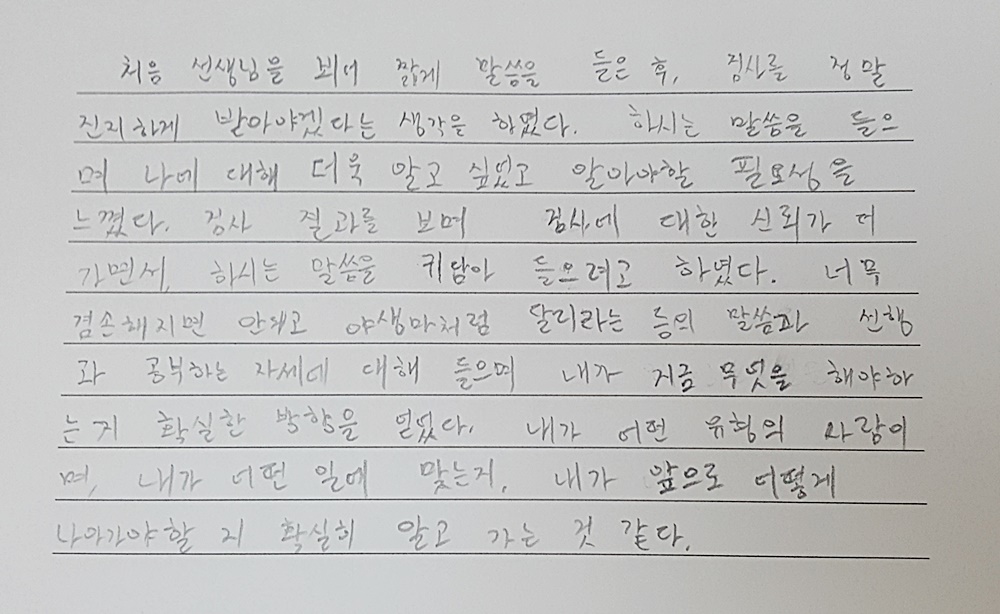 처음 선생님을 뵈어 짧게 말씀을 들은 후, 검사를 정말
진지하게 받아야겠다는 생각을 하였다. 하시는 말씀을 들으
며 나에 대해 더욱 알고 싶었고 알아야할 필요성을
느꼈다. 검사 결과를 보며 검사에 대한 신뢰가 더
가면서, 하시는 말씀을 귀담아 들으려고 하였다. 너무
겸손해지면 안되고 야생마처럼 달리라는 등의 말씀과 선행
과 공부하는 자세에 대해 들으며 내가 지금 무엇을 해야하
는지 확실한 방향을 얻었다. 내가 어떤 유형의 사람이
며, 내가 어떤 일에 맞는지, 내가 앞으로 어떻게
나아가야할 지 확실히 알고 가는 것 같다.